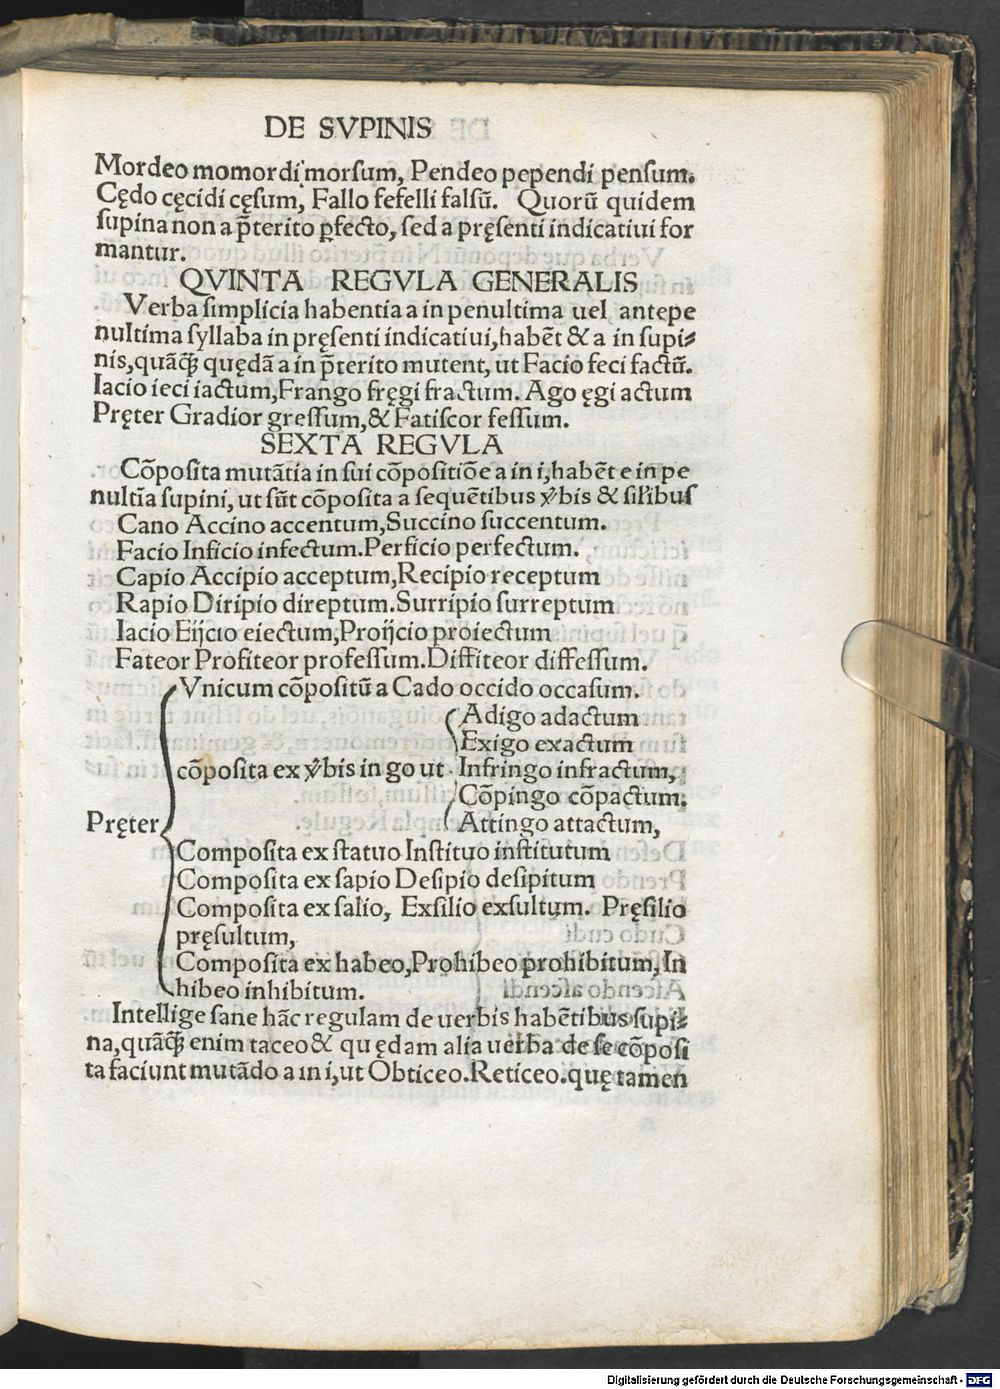 DE SVPINIS
Mordeo momordi morſum, Pendeo pependi penſum.
Cędo cęcidi cęſum, Fallo fefelli falſū. Quorū quidem
ſupina non a p̄terito ꝑfecto, ſed a pręſenti indicatiui for
mantur.
QVINTA REGVLA GENERALIS
Verba ſimplicia habentia a in penultima uel antepe
nultima ſyllaba in pręſenti indicatiui, habēt & a in ſupi⸗
nis, quāꝗ̄ȝ quędā a in p̄terito mutent, ut Facio feci factū.
Iacio ieci iactum, Frango fręgi fractum. Ago ęgi actum
Pręter Gradior greſſum, & Fatiſcor feſſum.
SEXTA REGVLA
Cōpoſita mutātia in ſui cōpoſitiōe a in i, habēt e in pe
nultīa ſupini, ut ſūt cōpoſita a ſequētibus v̆bis & ſil'ibus
Cano Accino accentum, Succino ſuccentum.
Facio Inficio infectum. Perficio perfectum.
Capio Accipio acceptum, Recipio receptum
Rapio Diripio direptum. Surripio ſurreptum
Iacio Eijcio eiectum, Proijcio proiectum
Fateor Profiteor profeſſum. Diffiteor diffeſſum.
Vnicum cōpoſitū a Cado occido occaſum.
Adigo adactum
Exigo exactum
cōpoſita ex v̆bis in go ut Infringo infractum,
Cōpingo cōpactum.
Pręter Attingo attactum,
Compoſita ex ſtatuo Inſtituo inſtitutum
Compoſita ex ſapio Deſipio deſipitum
Compoſita ex ſalio, Exſilio exſultum. Pręſilio
pręſultum,
Compoſita ex habeo, Prohibeo prohibitum, In
hibeo inhibitum.
Intellige ſane hāc regulam de uerbis habētibus ſupi⸗
na, quāꝗ̄ȝ enim taceo & quędam alia uerba de ſe cōpoſi
ta faciunt mutādo a in i, ut Obticeo. Reticeo. quę tamen
Digitalisierung gefördert durch die Deutsche Forschungsgemeinschaft - DFG